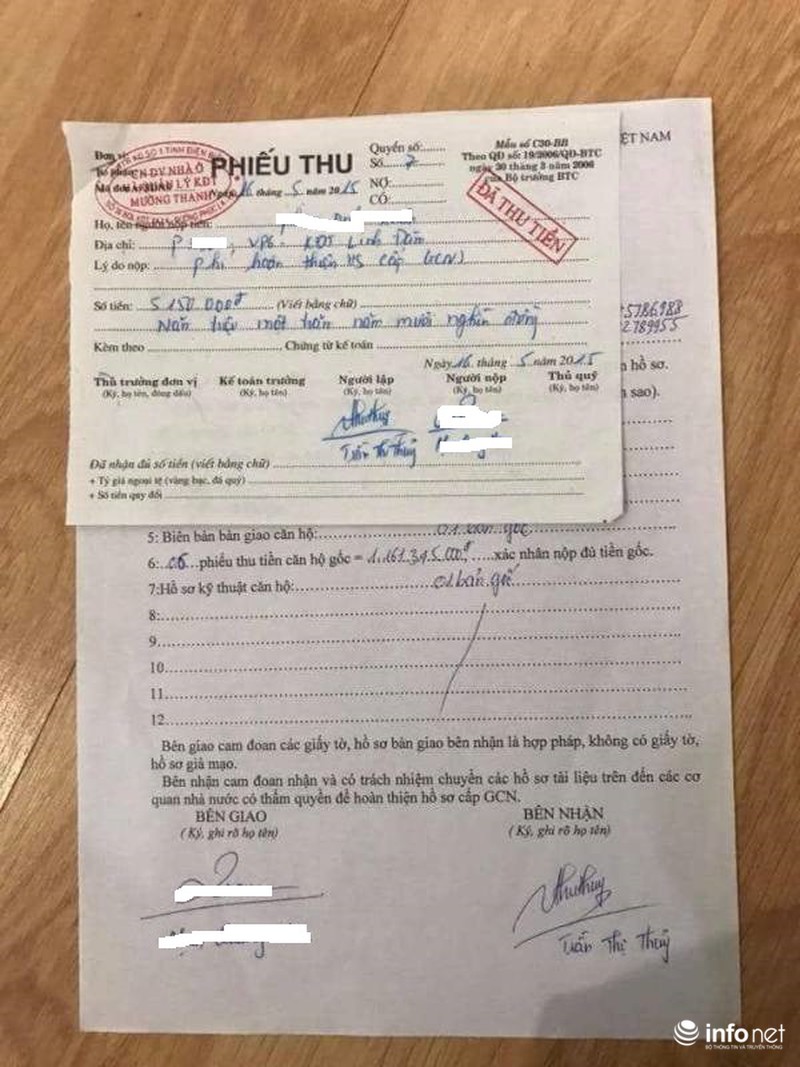 PHIẾU THU
Quyển số:......
Số......7......
NỢ:.............
CÓ:.............
Mẫu số C30-BB
Theo QĐ số: 19/2006/QĐ-BTC
ngày 30 tháng 3 năm 2006
của Bộ trưởng BTC
MƯỜNG THANH
Ngày 16 tháng 5 năm 2015
ĐÃ THU TIỀN
Họ, tên người nộp tiền:
Địa chỉ: P , VP6 - KĐT Linh Đàm
Lý do nộp: phí hoàn thiện HS cấp GCN
Số tiền: 5.150.000đ (Viết bằng chữ)
Năm triệu một trăm năm mươi nghìn đồng
Kèm theo Chứng từ kế toán
Ngày 16 tháng 5 năm 2015
Thủ trưởng đơn vị Kế toán trưởng Người lập Người nộp Thủ quỹ
(Ký, họ tên, đóng dấu) (Ký, họ tên) (Ký, họ tên) (Ký, họ tên) (Ký, họ tên)
Trần Thị Thuỷ
Đã nhận đủ số tiền (viết bằng chữ)
+ Tỷ giá ngoại tệ (vàng bạc, đá quý)
+ Số tiền quy đổi
IỆT NAM
5786988
2789955
n hồ sơ.
n sao).
5: Biên bản bàn giao căn hộ: 01 bản gốc
6: 06 phiếu thu tiền căn hộ gốc = 1.161.395.000đ xác nhận nộp đủ tiền gốc.
7:Hồ sơ kỹ thuật căn hộ: 01 bản gốc
8:
9.
10.
11.
12.
Bên giao cam đoan các giấy tờ, hồ sơ bàn giao bên nhận là hợp pháp, không có giấy tờ,
hồ sơ giả mạo.
Bên nhận cam đoan nhận và có trách nhiệm chuyển các hồ sơ tài liệu trên đến các cơ
quan nhà nước có thẩm quyền để hoàn thiện hồ sơ cấp GCN.
BÊN GIAO BÊN NHẬN
( Ký, ghi rõ họ tên) ( Ký, ghi rõ họ tên)
Trần Thị Thuỷ
infonet
BỘ THÔNG TIN VÀ TRUYỀN THÔNG